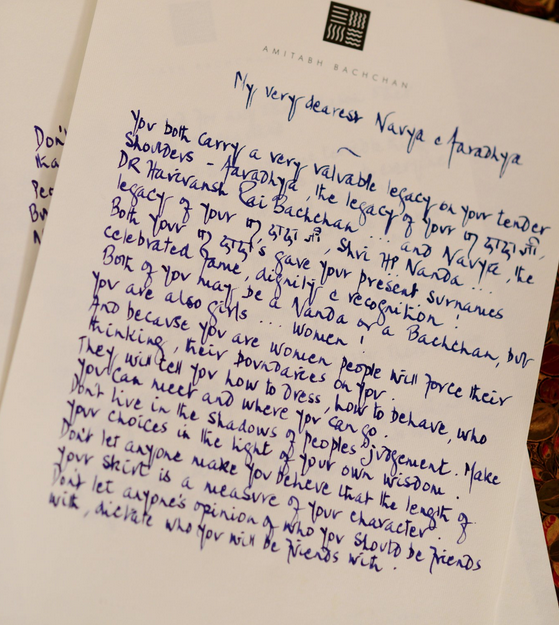 AMITABH BACHCHAN
My very dearest Navya & Aaradhya
You both carry a very valuable legacy on your tender
shoulders - Aaradhya, the legacy of your दादा जी,
DR Harivansh Rai Bachchan ... and Navya, the
legacy of your दादा जी, Shri HP Nanda ...
Both your दादा जी's gave your present surnames
celebrated fame, dignity & recognition !
Both of you may be a Nanda or a Bachchan, but
you are also girls ... women !
And because you are women people will force their
thinking, their boundaries on you.
They will tell you how to dress, how to behave, who
you can meet and where you can go.
Don't live in the shadows of peoples judgement. Make
your choices in the light of your own wisdom.
Don't let anyone make you believe that the length of
your skirt is a measure of your character.
Don't let anyone's opinion of who you should be friends
with, dictate who you will be friends with.